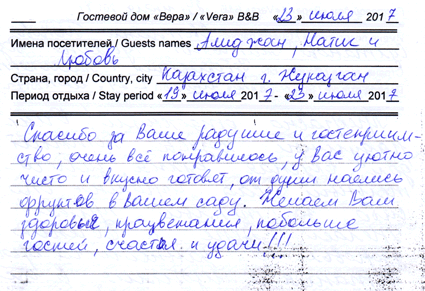 Гостевой дом «Вера» / «Vera» B&B «23» июля 2017
Имена посетителей / Guests names Алиджан, Натик и
Любовь
Страна, город / Country, city Казахстан г.
Период отдыха / Stay period «19» июля 2017 - «23» июля 2017
Спасибо за Ваше радушие и гостеприим-
ство, очень всё понравилось, у Вас уютно
чисто и вкусно готовят, от души наелись
фруктов в Вашем саду. Желаем Вам
здоровья, процветания, побольше
гостей, счастья и удачи!!!